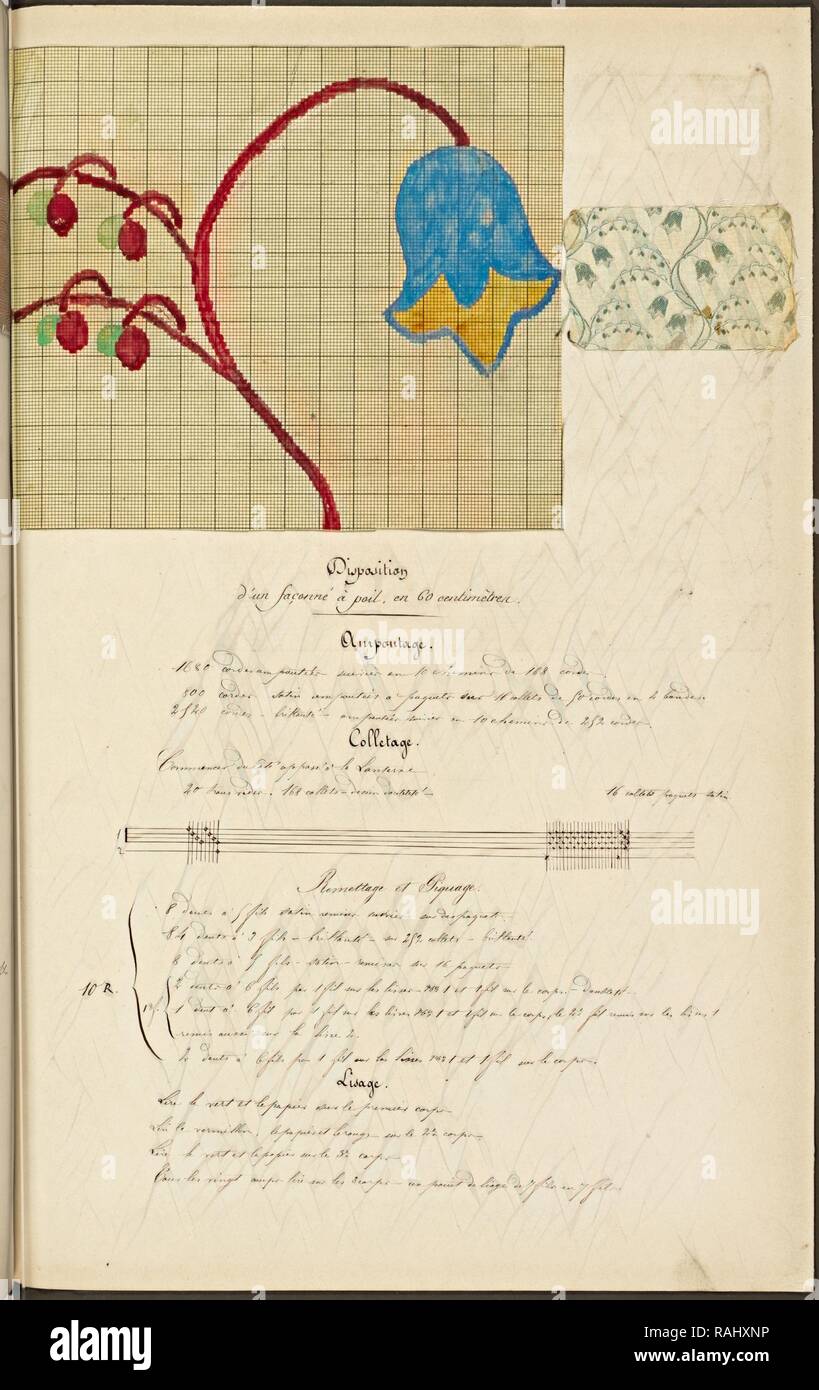 Disposition
d'un façonné à poil, en 60 centimètres.
Ampoutage.
1680 cordes empoutées suivies en 10 chemins de 168 cordes
800 cordes satin empoutées à paquets sur 16 collets de 50 cordes en 4 bandes
2520 cordes - brillanté - empoutées suivies en 10 chemins de 252 cordes.
Colletage.
Commencer du côté opposé à la Lanterne
20 trous vides. 168 collets 16 collets paquets satin
1
2
Remettage et Piquage.
8 dents à 5 fils satin remises suivies sur des paquets
84 dents à 3 fils - brillanté - sur 252 collets - brillanté
8 dents à 5 fils - satin - remises sur 16 paquets
10 R. 2 dents à 6 fils par 1 fil sur les lisses et 1 fil sur le corps
1 dent à 6 fils par 1 fil sur les lisses et 1 fil sur le corps, le fil remis sur les lisses 1
remis aussi sur la lisse 2.
2 dents à 6 fils par 1 fil sur les lisses et 1 fil sur le corps.
Lisage.
Lire le vert et le papier sur le premier corps
Lire le vermillon, le papier et le rouge sur le 2e corps
Lire le vert et le papier sur le 3e corps
Tous les vingt coups lire sur les corps un point de liage de 7 fils en 7 fils.
alamy
alamy
alamy
alamy
Image ID: RAHXNP
www.alamy.com